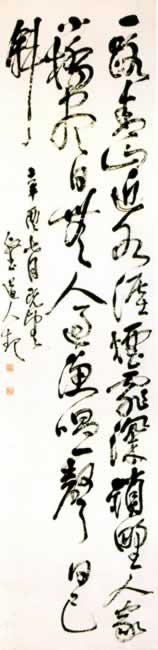 一路青山近水涯煙霏深鎖野人家
小橋盡日無人過漁唱一聲日已
斜
辛酉七月既望
道人